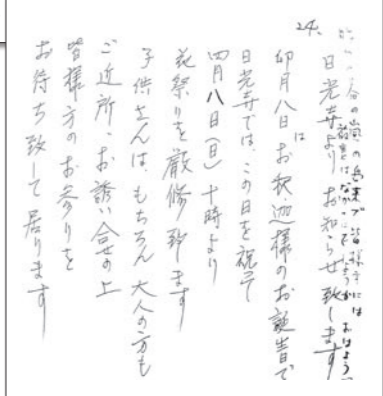 皆様方には おはよう
被害はなかったでしょうか
24.
日光寺より お知らせ致します
卯月八日は お釈迦様のお誕生日で
日光寺では、この日を祝って
四月八日(日)十時より
花祭りを厳修致します
子供さんは、もちろん 大人の方も
ご近所、お誘い合せの上
皆様方のお参りを
お待ち致して居ります